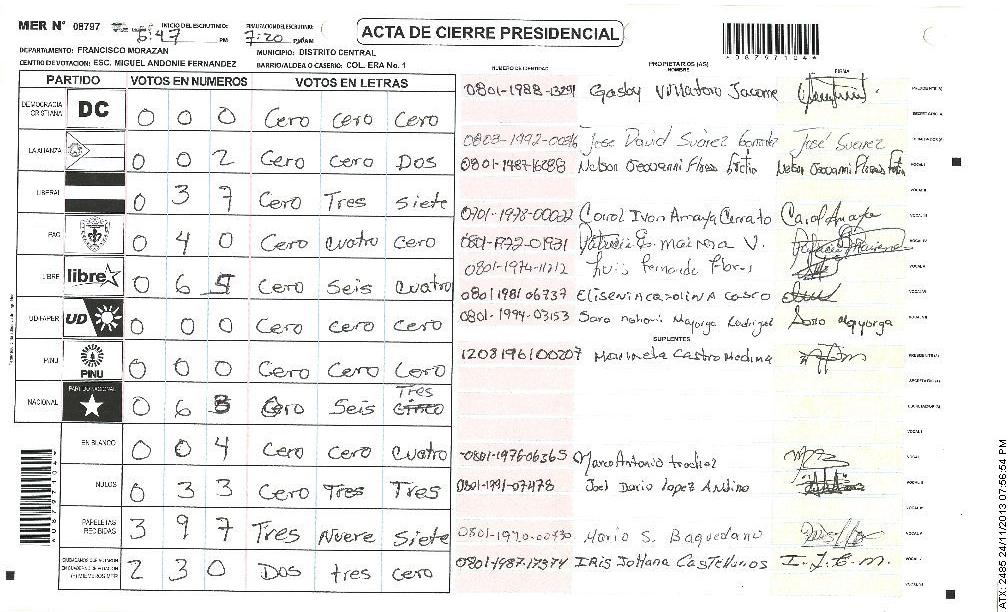 MER N° 08797 INICIO DEL ESCRUTINIO: 5:47 PM 7:20
ACTA DE CIERRE PRESIDENCIAL
*A087971044*
DEPARTAMENTO: FRANCISCO MORAZAN MUNICIPIO: DISTRITO CENTRAL
CENTRO DE VOTACION: ESC. MIGUEL ANDONIE FERNANDEZ BARRIO/ALDEA O CASERIO: COL. ERA No. 1
PARTIDO VOTOS EN NUMEROS VOTOS EN LETRAS
DEMOCRACIA CRISTIANA DC 0 0 0 Cero cero cero
LA ALIANZA 0 0 2 Cero Cero Dos
LIBERAL 0 3 7 Cero Tres siete
PAC 0 4 0 Cero cuatro cero
LIBRE libre 0 6 Cero Seis cuatro
UD FAPER UD 0 0 0 Cero cero cero
PINU PINU 0 0 0 Cero Cero Cero
NACIONAL PARTIDO NACIONAL 0 6 3 Cero Seis Tres cinco
EN BLANCO 0 0 4 Cero cero cuatro
NULOS 0 3 3 Cero Tres Tres
PAPELETAS RECIBIDAS 3 9 7 Tres Nueve Siete
2 3 0 Dos tres cero
NUMERO DE IDENTIDAD PROPIETARIOS (AS) NOMBRE FIRMA
0801-1988-13291 Gasby Villatoro Jacome PRESIDENTE(A)
SECRETARIO(A)
Jose David Suárez José Suarez
Nelson Geovanni Flores
VOCAL II
0701-1978-00022 Carol Ivon Amaya Cerrato Carol Amaya
Patricia E. mairena V.
0801-1974-11212 Luis Fernando Flores
0801 1981 06737 Eliseniacarolina casco
0801-1994-03153 Sara nohemi Mayorga Rodriguez Sara
SUPLENTES
1208196100207 Marinela Castro Medina PRESIDENTE(A)
SECRETARIO(A)
ESCRUTADOR(A)
VOCAL I
0801-1976-06365 Marco Antonio trochez
0801-1991-07478 Joel Dario Lopez Andino
0801-1970-00430 Mario S. Baquedano
0801-1987-17374 IRis Johana Castellanos I.J.C.m.
A087971044
ATX: 2485 24/11/2013 07:56:54 PM